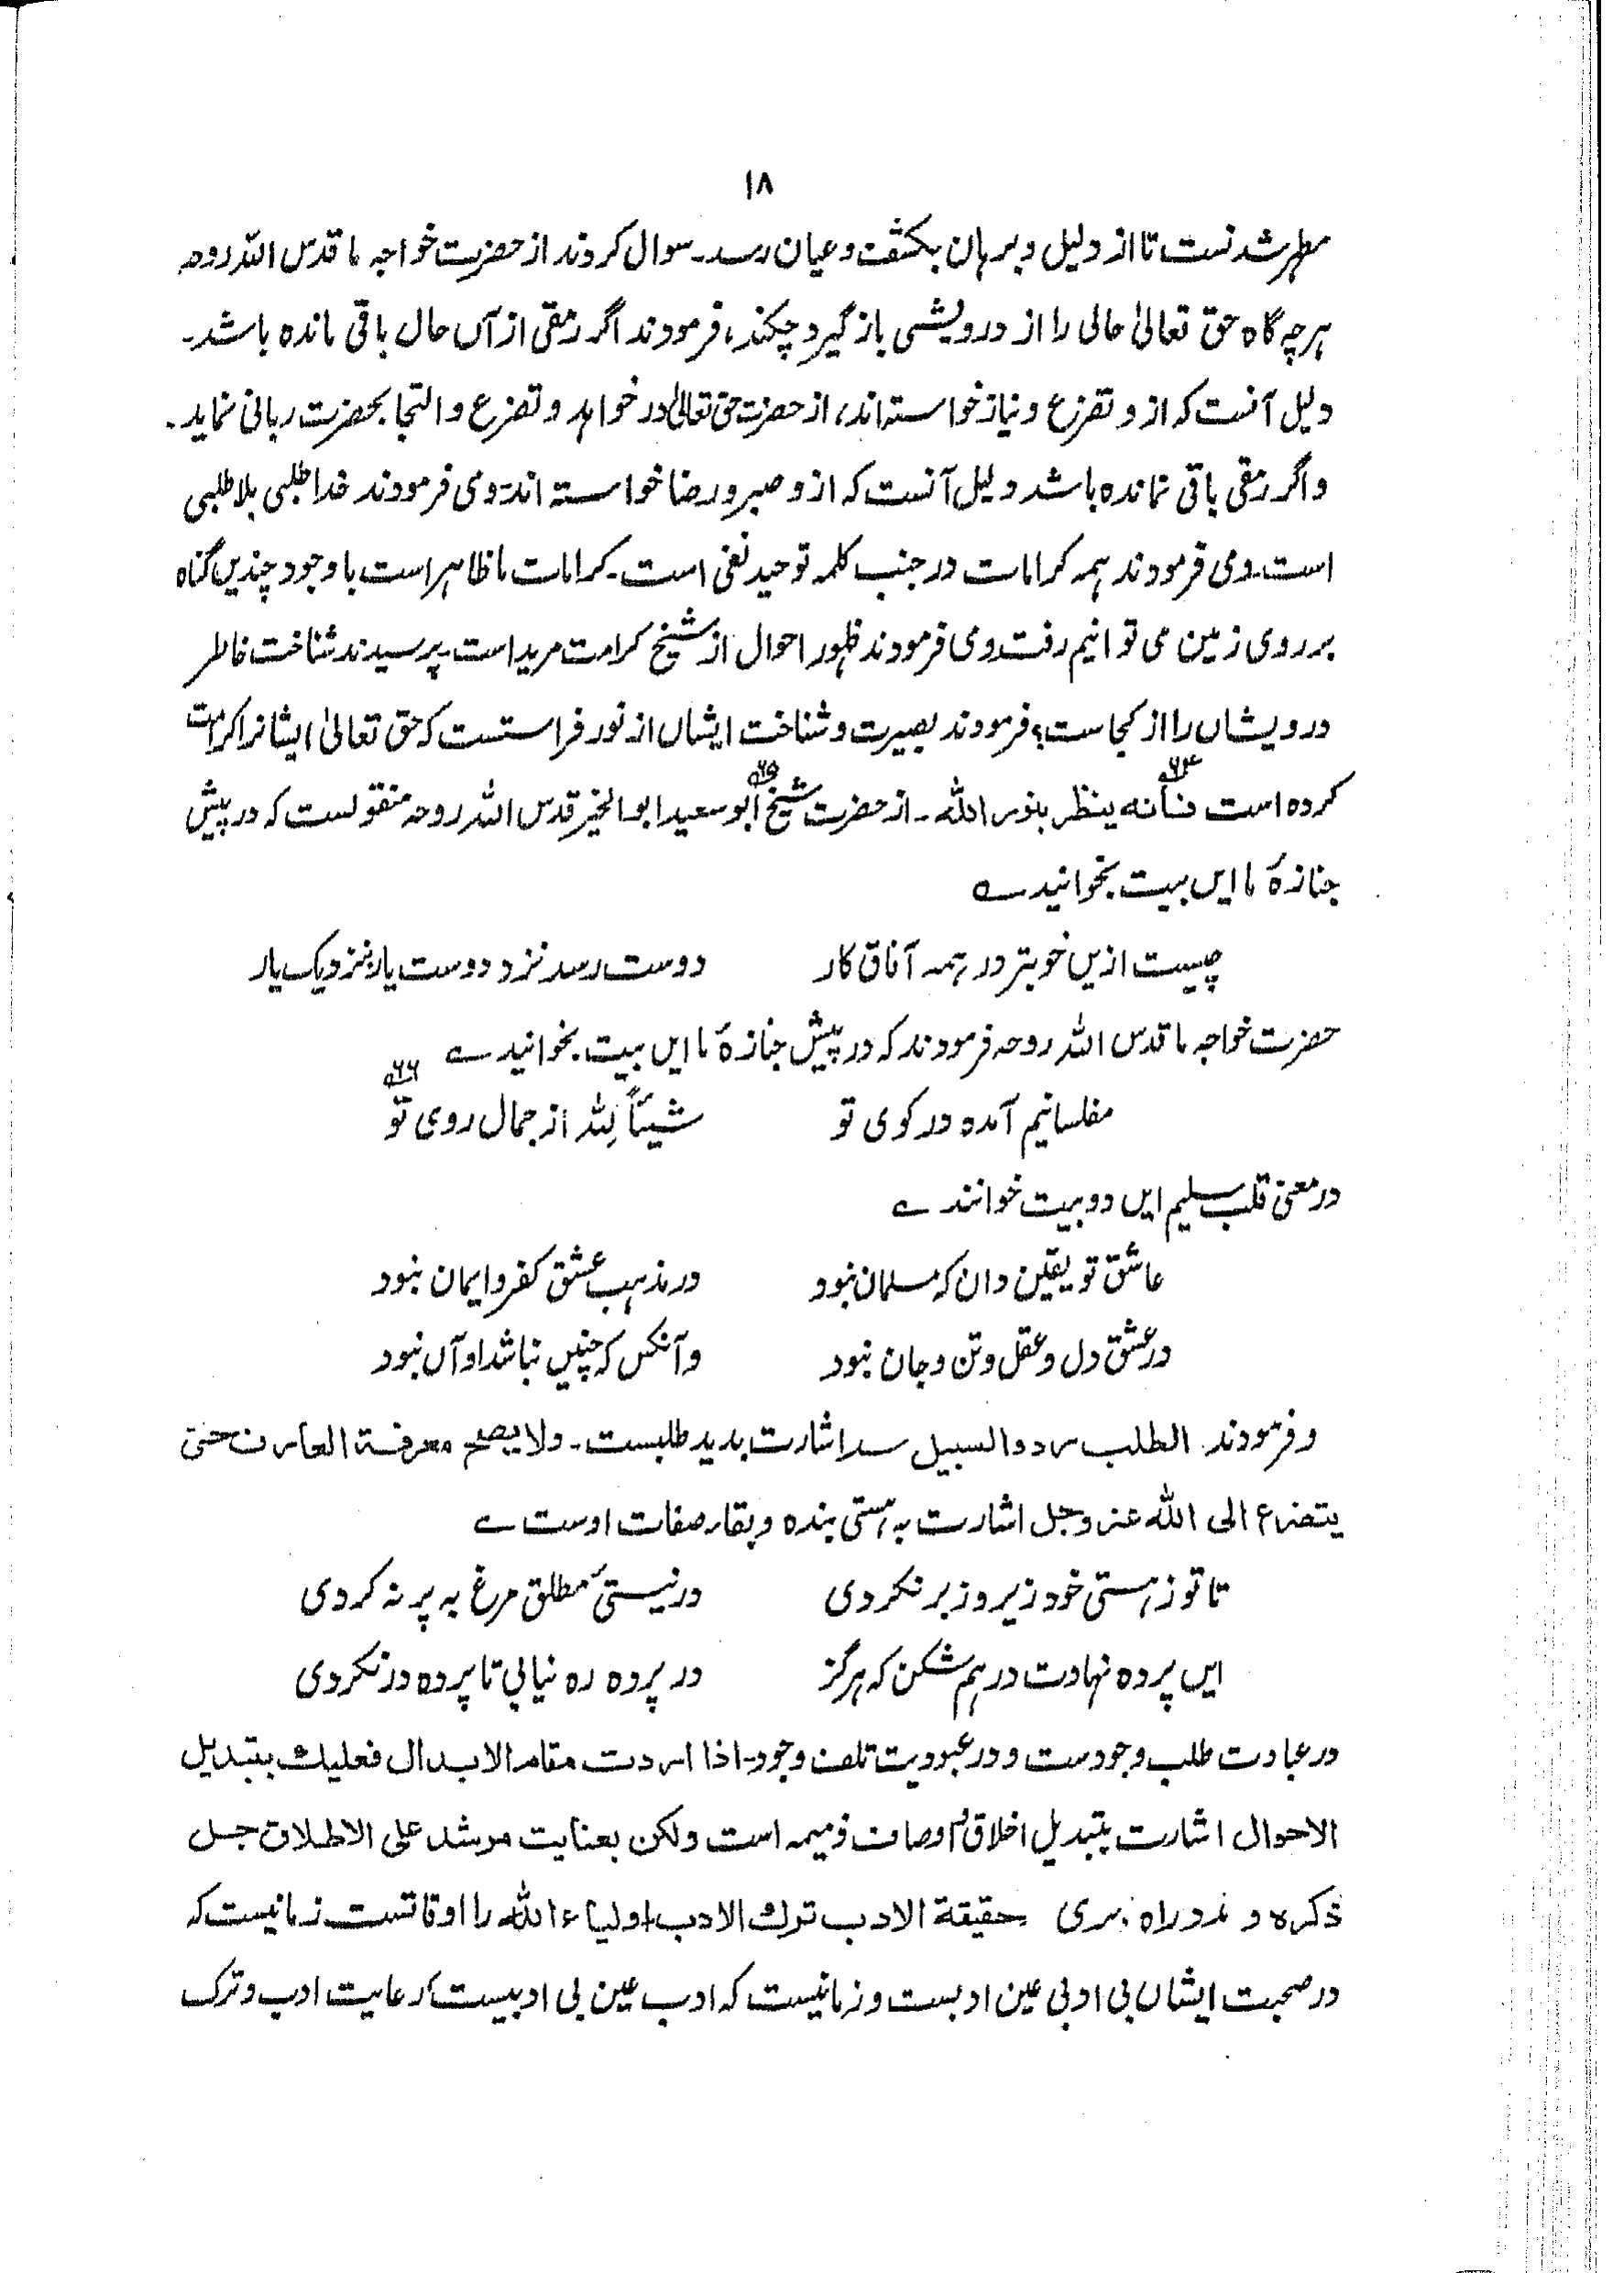 ۱۸
مطهر شدنست تا از دلیل و برہان بکشف و عیان رسد۔ سوال کردند از حضرت خواجہ ما قدس اللہ روحہ
ہرچہ گاہ حق تعالیٰ حالی را از درویشی باز گیرد چکند، فرمودند اگر رمقی از آں حال باقی ماندہ باشد۔
دلیل آنست کہ ازو تضرع و نیاز خواستہ اند، از حضرت حق تعالیٰ در خواہد و تضرع و التجا بحضرت ربانی نماید۔
و اگر رمقی باقی نماندہ باشد دلیل آنست کہ ازو صبر و رضا خواستہ اند۔ و می فرمودند خدا طلبی بلا طلبی
است۔ و می فرمودند ہمہ کرامات در جنب کلمہ توحید نفی است۔ کرامات ما ظاہر است با وجود چندیں گناہ
بر روی زمین می توانیم رفت۔ و می فرمودند ظہور احوال از شیخ کرامت مرید است۔ پرسیدند شناخت خاطر
درویشاں را از کجاست؟ فرمودند بصیرت و شناخت ایشاں از نور فراستست کہ حق تعالیٰ ایشانرا کرامت
کردہ است فانه ینظر بنور الله ۶۴۔ از حضرت شیخ ابو سعید ابو الخیر ۶۵ قدس اللہ روحہ منقولست کہ در پیش
جنازہٴ ما ایں بیت بخوانید ے
چیست ازیں خوبتر در ہمہ آفاق کار دوست رسد نزد دوست یار بنزدیک یار
حضرت خواجہ ما قدس اللہ روحہ فرمودند کہ در پیش جنازہٴ ما ایں بیت بخوانید ے
مفلسانیم آمدہ در کوی تو شیئاً لِلّٰہ از جمال روی تو ۶۶
در معنی قلب سلیم ایں دو بیت خوانند ے
عاشق تو یقین دان کہ مسلمان نبود در مذہب عشق کفر و ایمان نبود
در عشق دل و عقل و تن و جان نبود وآنکس کہ چنیں نباشد او آں نبود
و فرمودند الطلب رد و السبیل سد اشارت بدید طلبست۔ ولا یصح معرفة العارف حتی
یتضرع الی الله عز وجل اشارت بہ ہستی بندہ و بقاء صفات اوست ے
تا تو ز ہستی خود زیر و زبر نکردی در نیستیٴ مطلق مرغ بہ پر نہ کردی
ایں پردہ نہادت درہم شکن کہ ہرگز در پردہ رہ نیابی تا پردہ در نکردی
در عبادت طلب وجودست و در عبودیت تلف وجود۔ اذا اردت مقام الابدال فعلیك بتبدیل
الاحوال اشارت بتبدیل اخلاق و اوصاف ذمیمہ است ولکن بعنایت مرشد علی الاطلاق جل
ذکره و راہ بری۔ حقیقة الادب ترك الادب اولیاء الله را اوقاتست زمانیست کہ
در صحبت ایشاں بی ادبی عین ادبست و زمانیست کہ ادب عین بی ادبیست کہ رعایت ادب و ترک